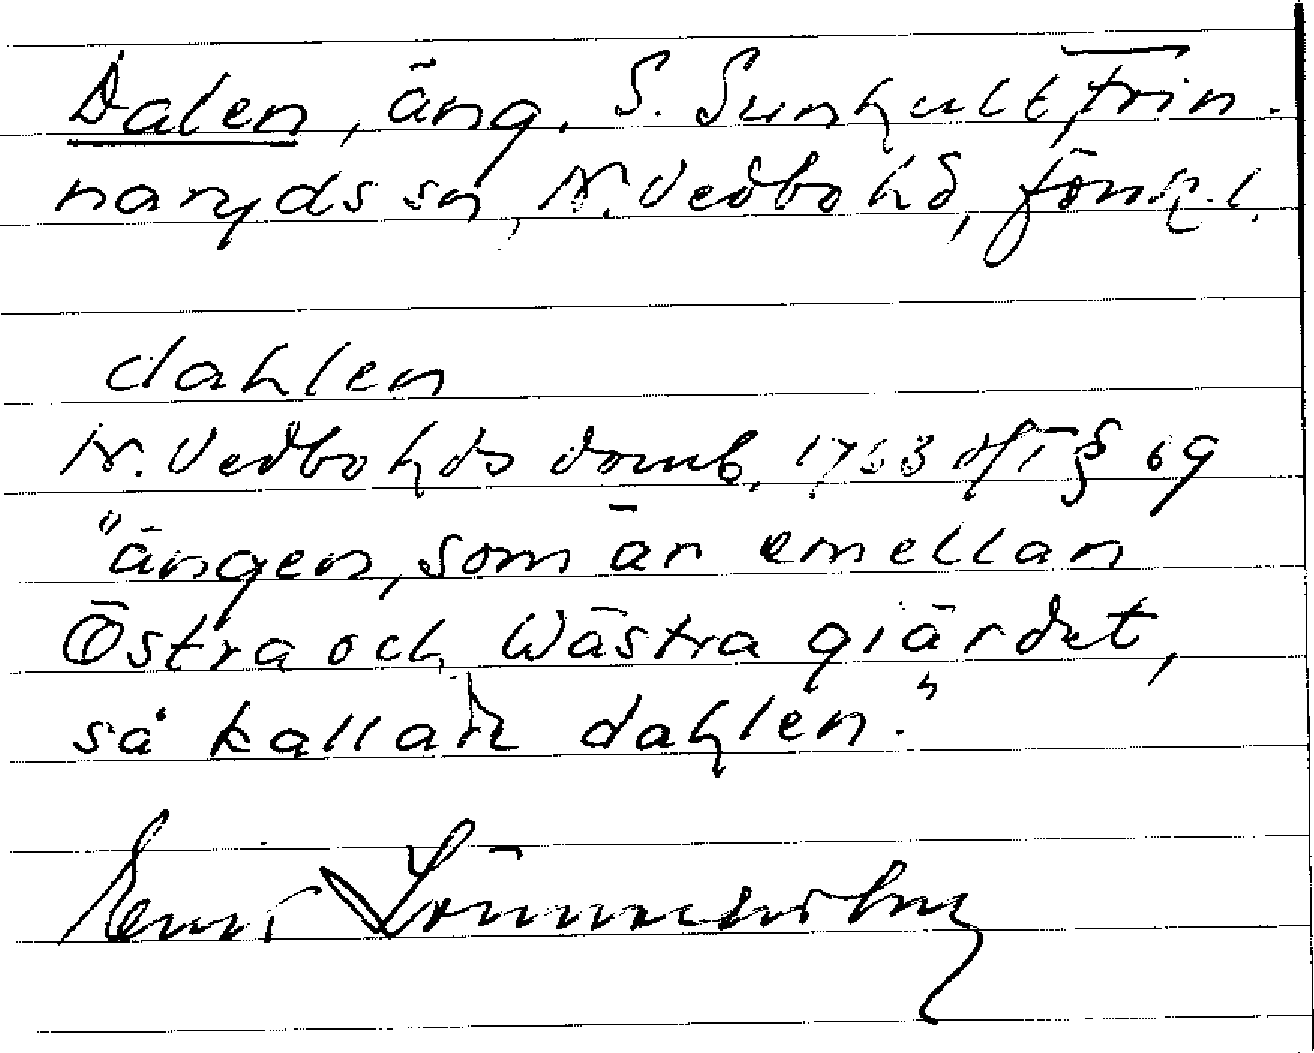 Dalen, äng. S. Sunhult Frin-
naryds sn, N. Vedbo hd, Jönk. l.
dahlen
N. Vedbo hds domb. 1763 § 69
"ängen, som är emellan
Östra och Wästra giärdet,
så kallad dahlen."